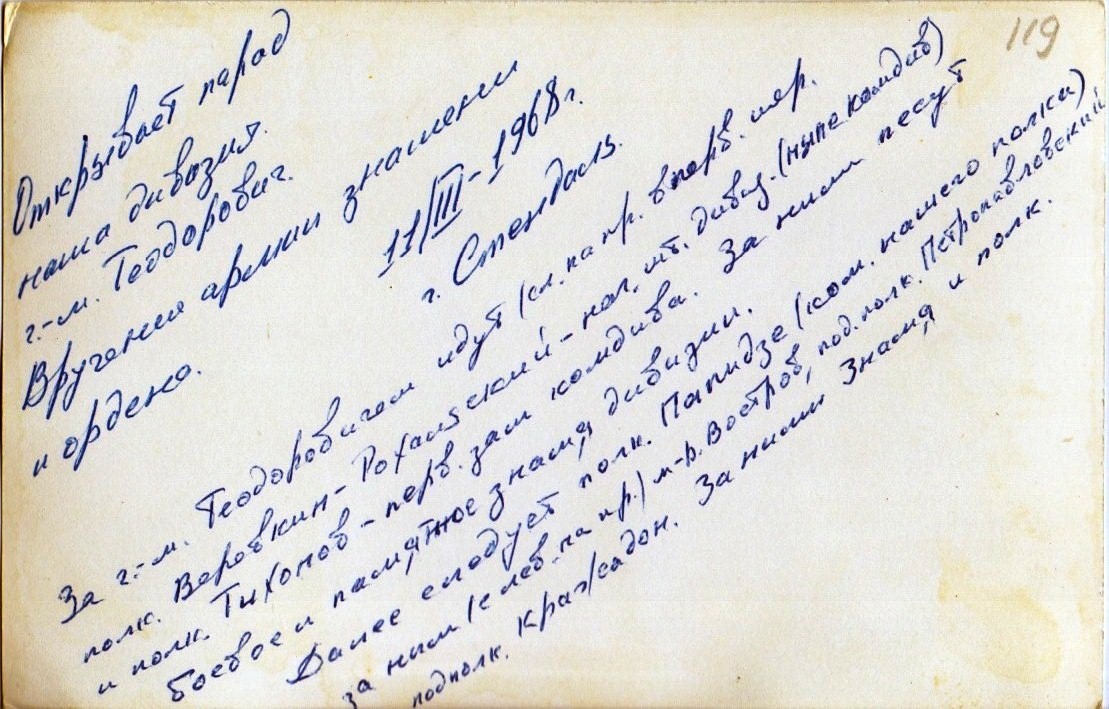 119
Открывает парад
наша дивизия.
г-м. Теодорович.
Вручения армии знамени
и ордена.
11/III-1968г.
г. Стендаль.
За г-м. Теодоровичем идут (сл. на пр. в перв. шер.
полк. Веровкин-Рохальский - нач. шт. дивиз. (ныне комдив)
и полк. Тихонов - перв. зам комдива. За ними несут
боевое и памятное знамя дивизии.
Далее следует полк. Папидзе (ком. нашего полка)
за ним (с лев. на пр.) м-р. Востров, под.полк. Петропавловский
подполк. За ними знамя и полк.